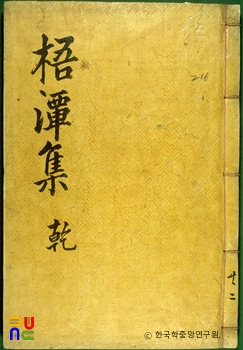 梧潭集 乾
216
1
共二
© 한국학중앙연구원